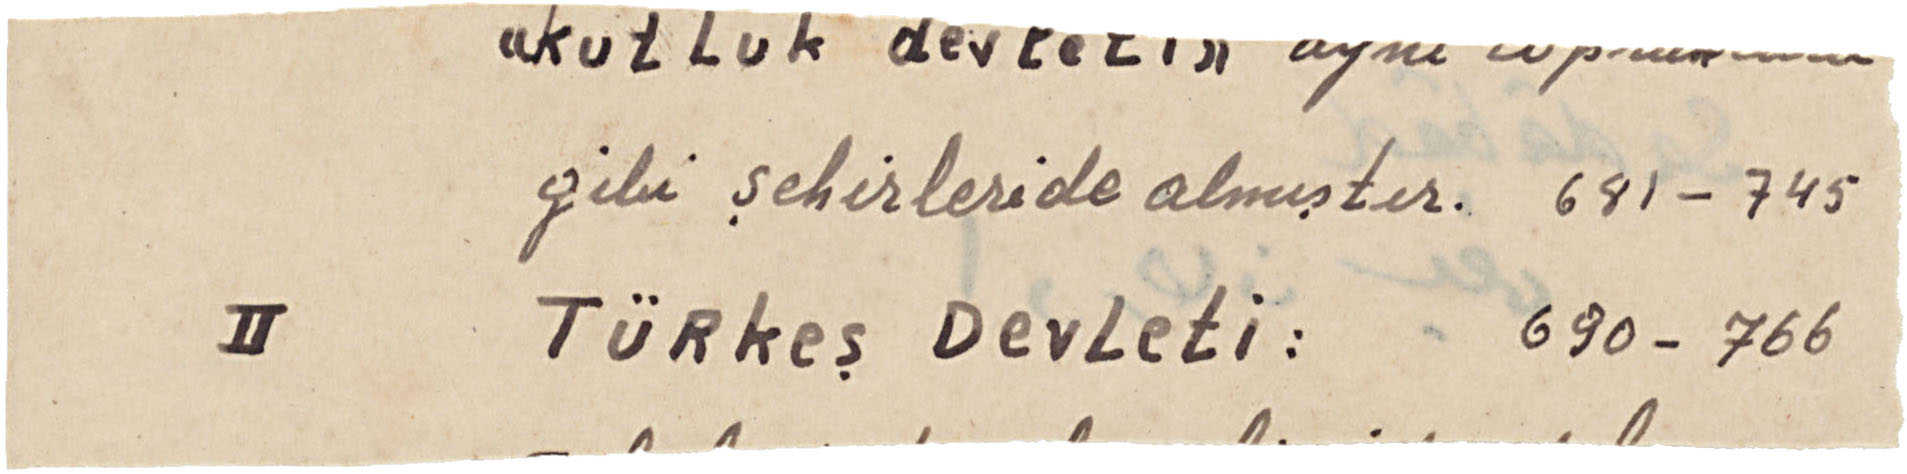 «kutluk devleti» ayni
gibi şehirleride almıştır. 681 - 745
II TÜRkeş DevLeti: 690 - 766